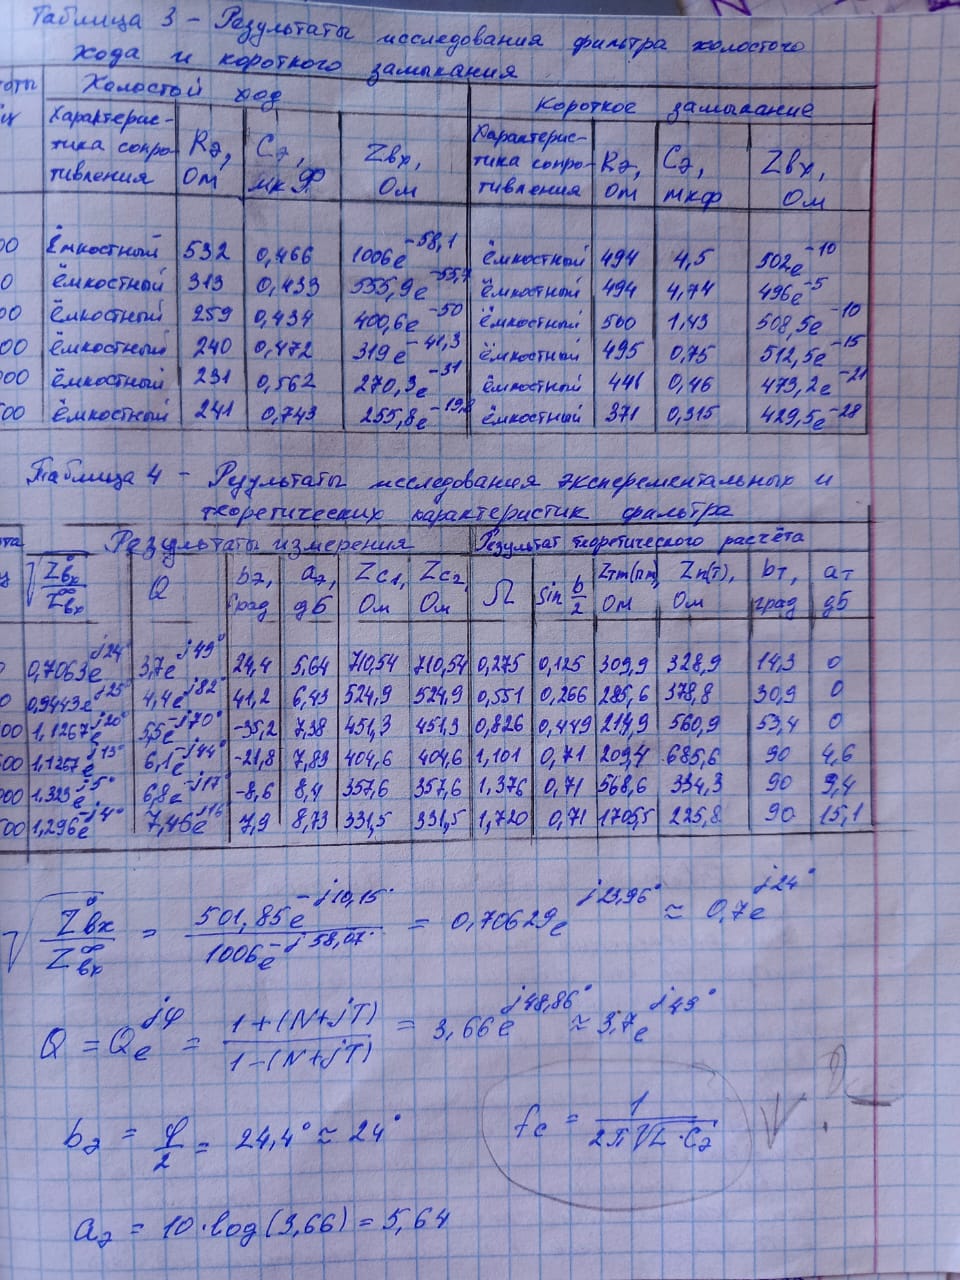 Таблица 3 – Результаты исследования фильтра холостого
хода и короткого замыкания
Холостой ход Короткое замыкание
Характерис-тика сопро-тивления Rэ, Ом Cэ, мкФ Zвх, Ом Характерис-тика сопро-тивления Rэ, Ом Cэ, мкф Zвх, Ом
00 Ёмкостный 532 0,466 1006e^-58,1 ёмкостный 494 4,5 502e^-10
0 ёмкостный 313 0,433 555,9e^-55,7 ёмкостный 494 4,74 496e^-5
00 ёмкостный 259 0,434 400,6e^-50 ёмкостный 500 1,43 508,5e^-10
00 ёмкостный 240 0,472 319e^-41,3 ёмкостный 495 0,75 512,5e^-15
000 ёмкостный 231 0,562 270,3e^-31 ёмкостный 446 0,46 473,2e^-21
500 ёмкостный 241 0,743 255,8e^-19,8 ёмкостный 371 0,315 429,5e^-28
Таблица 4 – Результаты исследования эксперементальных и
теоретических характеристик фильтра
Результаты измерения Результат теоретического расчёта
√(Z⁰вх/Z^∞вх) Q bэ, град aэ, дБ Zс1, Ом Zс2, Ом Ω sin b/2 Zтт(пт), Ом Zп(т), Ом bт, град aт дБ
0 0,7063e^j24° 3,7e^j49° 24,4 5,64 710,54 710,54 0,275 0,125 309,9 328,9 14,3 0
0 0,9443e^j25° 4,4e^j82° 41,2 6,43 524,9 524,9 0,551 0,266 285,6 378,8 30,9 0
00 1,1267e^j20° 5,5e^-j70° -35,2 7,38 451,3 451,3 0,826 0,449 219,9 560,9 53,4 0
500 1,1267e^j13° 6,1e^-j44° -21,8 7,83 404,6 404,6 1,101 0,71 209,4 685,6 90 4,6
000 1,323e^j5° 6,8e^-j17° -8,6 8,4 357,6 357,6 1,376 0,71 568,6 334,3 90 9,4
500 1,296e^-j4° 7,46e^j16° 7,9 8,73 331,5 331,5 1,720 0,71 1705,5 225,8 90 15,1
√(Z⁰вх/Z^∞вх) = 501,85e^-j10,15° / 1006e^-j58,07° = 0,70629e^j23,96° ≈ 0,7e^j24°
Q = Qe^jφ = 1+(N+jT) / 1-(N+jT) = 3,66e^j48,86° ≈ 3,7e^j49°
bэ = φ/2 = 24,4° ≈ 24°
fc = 1 / 2π√L·Cэ
aэ = 10·log(3,66) = 5,64